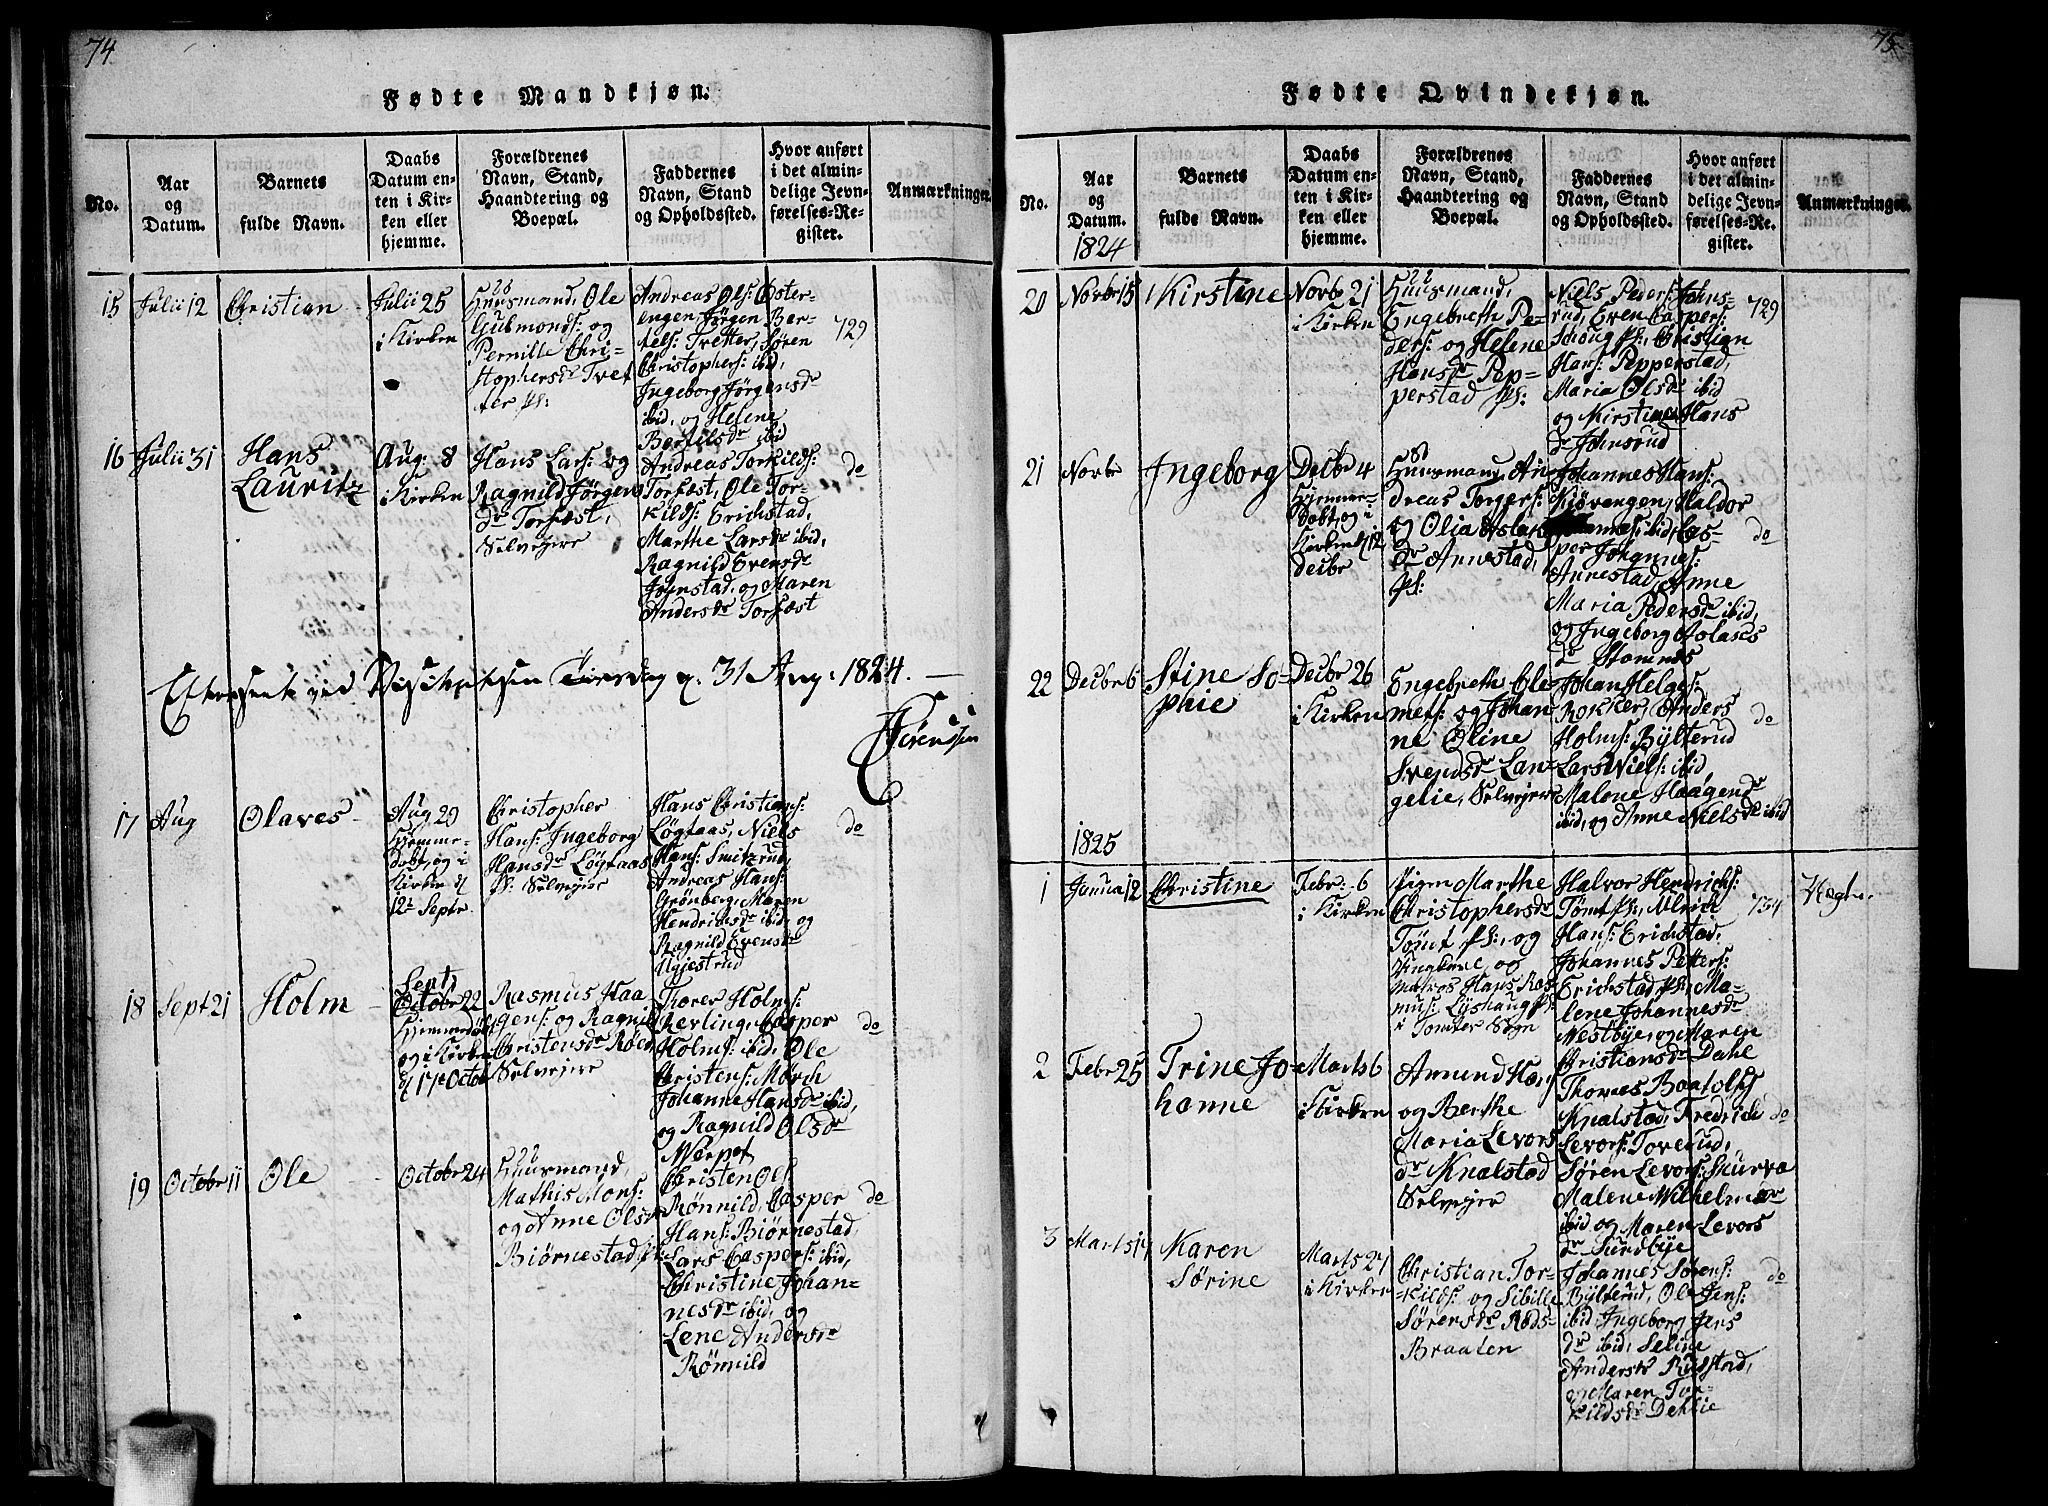 74.
Fødte Mandkjøn.
No.
Aar
og
Datum.
Barnets
fulde Navn.
Daabs
Datum en-
ten i Kir-
ken eller
hjemme.
Forældrenes
Navn, Stand,
Haandtering og
Boepæl.
Faddernes
Navn, Stand
og Opholdssted.
Hvor anført
i det almin-
delige Jevn-
førelses-Re-
gister.
Anmærkninger.
15
Julii 12
Christian
Julii 25
i Kirken
Huusmand, Ole
Gulmonds: og
Pernille Chri-
stophersdr Tvet
ter Ps:
Andreas Ols: Oster-
engen Jørgen Ber-
tels: Tvetter, Søren
Christophers: ibid,
Ingeborg Jørgensdr
ibid, og Helene
Bertilsdr ibid
729
16
Julii 31
Hans
Lauritz
Aug: 8
i Kirken
Hans Lars: og
Ragnild Jørgens
dr Torfæst,
Selvejere
Andreas Torkilds:
Torfæst, Ole Tor-
kilds: Erichstad,
Marthe Larsdr ibid,
Ragnild Evensdr
Johnstad, og Maren
Andersdr Torfæst
do
Efterseet ved Visitatsen Tirsdag d. 31 Aug: 1824.
Sørenssen
17
Aug
Olaves
Aug 29
Hjemme-
Dobt, og i
Kirken d
12t Septr.
Christopher
Hans: Ingeborg
Hansdr Løgtaas
Ps: Selvejere
Hans Christians:
Løgtaas, Niels
Hans: Smitzrud,
Andreas Hans:
Grønberg, Maren
Hendrichsdr ibid, og
Ragnild Evensdr
Ugjestrud
do
18
Sept 21
Holm
Sept
Octobr 22
Hjemmedøbt
og i Kirken
d 17e Octobr
Rasmus Haa
gens: og Ragnild
Christensdr Røed
Selvejere
Thorer Holms:
Kerlinge, Casper
Holms: ibid, Ole
Christens: Mørch
Johanne Hansdr ibid,
og Ragnild Olsdr
Nerpet
do
19
Octobr 11
Ole
Octobr 24
Huusmand,
Mathis Mons:
og Anne Olsdr
Biørnestad, Ps:
Christen Ols:
Rønnild, Casper
Hans: Biørnestad,
Lars Caspers: ibid,
Christine Johan-
nesdr ibid, og
Lene Andersdr
Rønnild
do
75
Fødte Qvindekjøn.
No.
Aar
og
Datum.
1824
Barnets
fulde Navn.
Daabs
Datum en-
ten i Kir-
ken eller
hjemme.
Forældrenes
Navn, Stand,
Haandtering og
Boepæl.
Faddernes
Navn, Stand
og Opholdssted.
Hvor anført
i det almin-
delige Jevn-
førelses-Re-
gister.
Anmærkninger.
20
Novbr 15
Kirstine
Novbr 21
i Kirken
Huusmand,
Engebreth Pe-
ders: og Helene
Hansdr Pep-
perstad Ps:
Niels Peders: Johns-
rud, Even Caspers
Schoug Ps:, Christian
Hans: Pepperstad,
Maria Olsdr ibid
og Kirstine Hans
dr Johnsrud
729
21
Novbr
Ingeborg
Decbr 4
Hjemme-
Dobt, og i
Kirken d 12
decbr
Huusmand, An
dreas Torgers:
og Olia Aslak
dr Annestad,
Ps:
Johannes Hans:
Kjøvangen, Haldor
ibid, Cas-
per Johannes:
Annestad, Anne
Maria Pedersdr ibid,
og Ingeborg Aolases
dr Stomnes
do
22
Decbr 6
Stine So-
phie
Decbr 26
i Kirken
Engebreth Cle-
mets: og Johan
ne Oline
Svendsdr Lan-
gelie, Selvejere
Johan Helges:
Rokker, Anders
Holms: Bylterud
Lars Niels: ibid
Malene Haagensdr
ibid, og Anne Nielsdr ibid
do
1825
1
Janua 12
Christine
Febr: 6
i Kirken
Pigen Marthe
Christophersdr
Tømt Ps:, og
Ungkarl, og
Matros Hans Ras
mus: Lyshaug Ps:
i Tomter Sogn
Halvor Hendrichs:
Tømt Ps:, Ulrick
Hans: Erichstad,
Johannes Petters:
Erichstad Ps:, Ma-
lene Johannesdr
Nestbye, og Maren
Christiansdr Dahl
734
Uægte.
2
Febr 25
Trine Jo
hanne
Marts 6
i Kirken
Amund Hans:
og Berthe
Maria Levors
dr Knalstad
Selvejer
Thomes Boatolfs:
Knalstad, Fredrich
Levors: Toverud,
Søren Levors: Skurva
Malene Wilhelmsdr
ibid og Maren Levors
dr Sundbye
do
3
Marts 14
Karen
Sørine
Marts 27
i Kirken
Christian Tor-
kilds: og Sibille
Sørensdr Røds-
Braaten
Johannes Sørens:
Bylterud, Ole Jens:
ibid, Ingeborg Jens
dr ibid, Seline
Andersdr Rudstad,
og Maren Tor-
kildsdr Dehlie
do